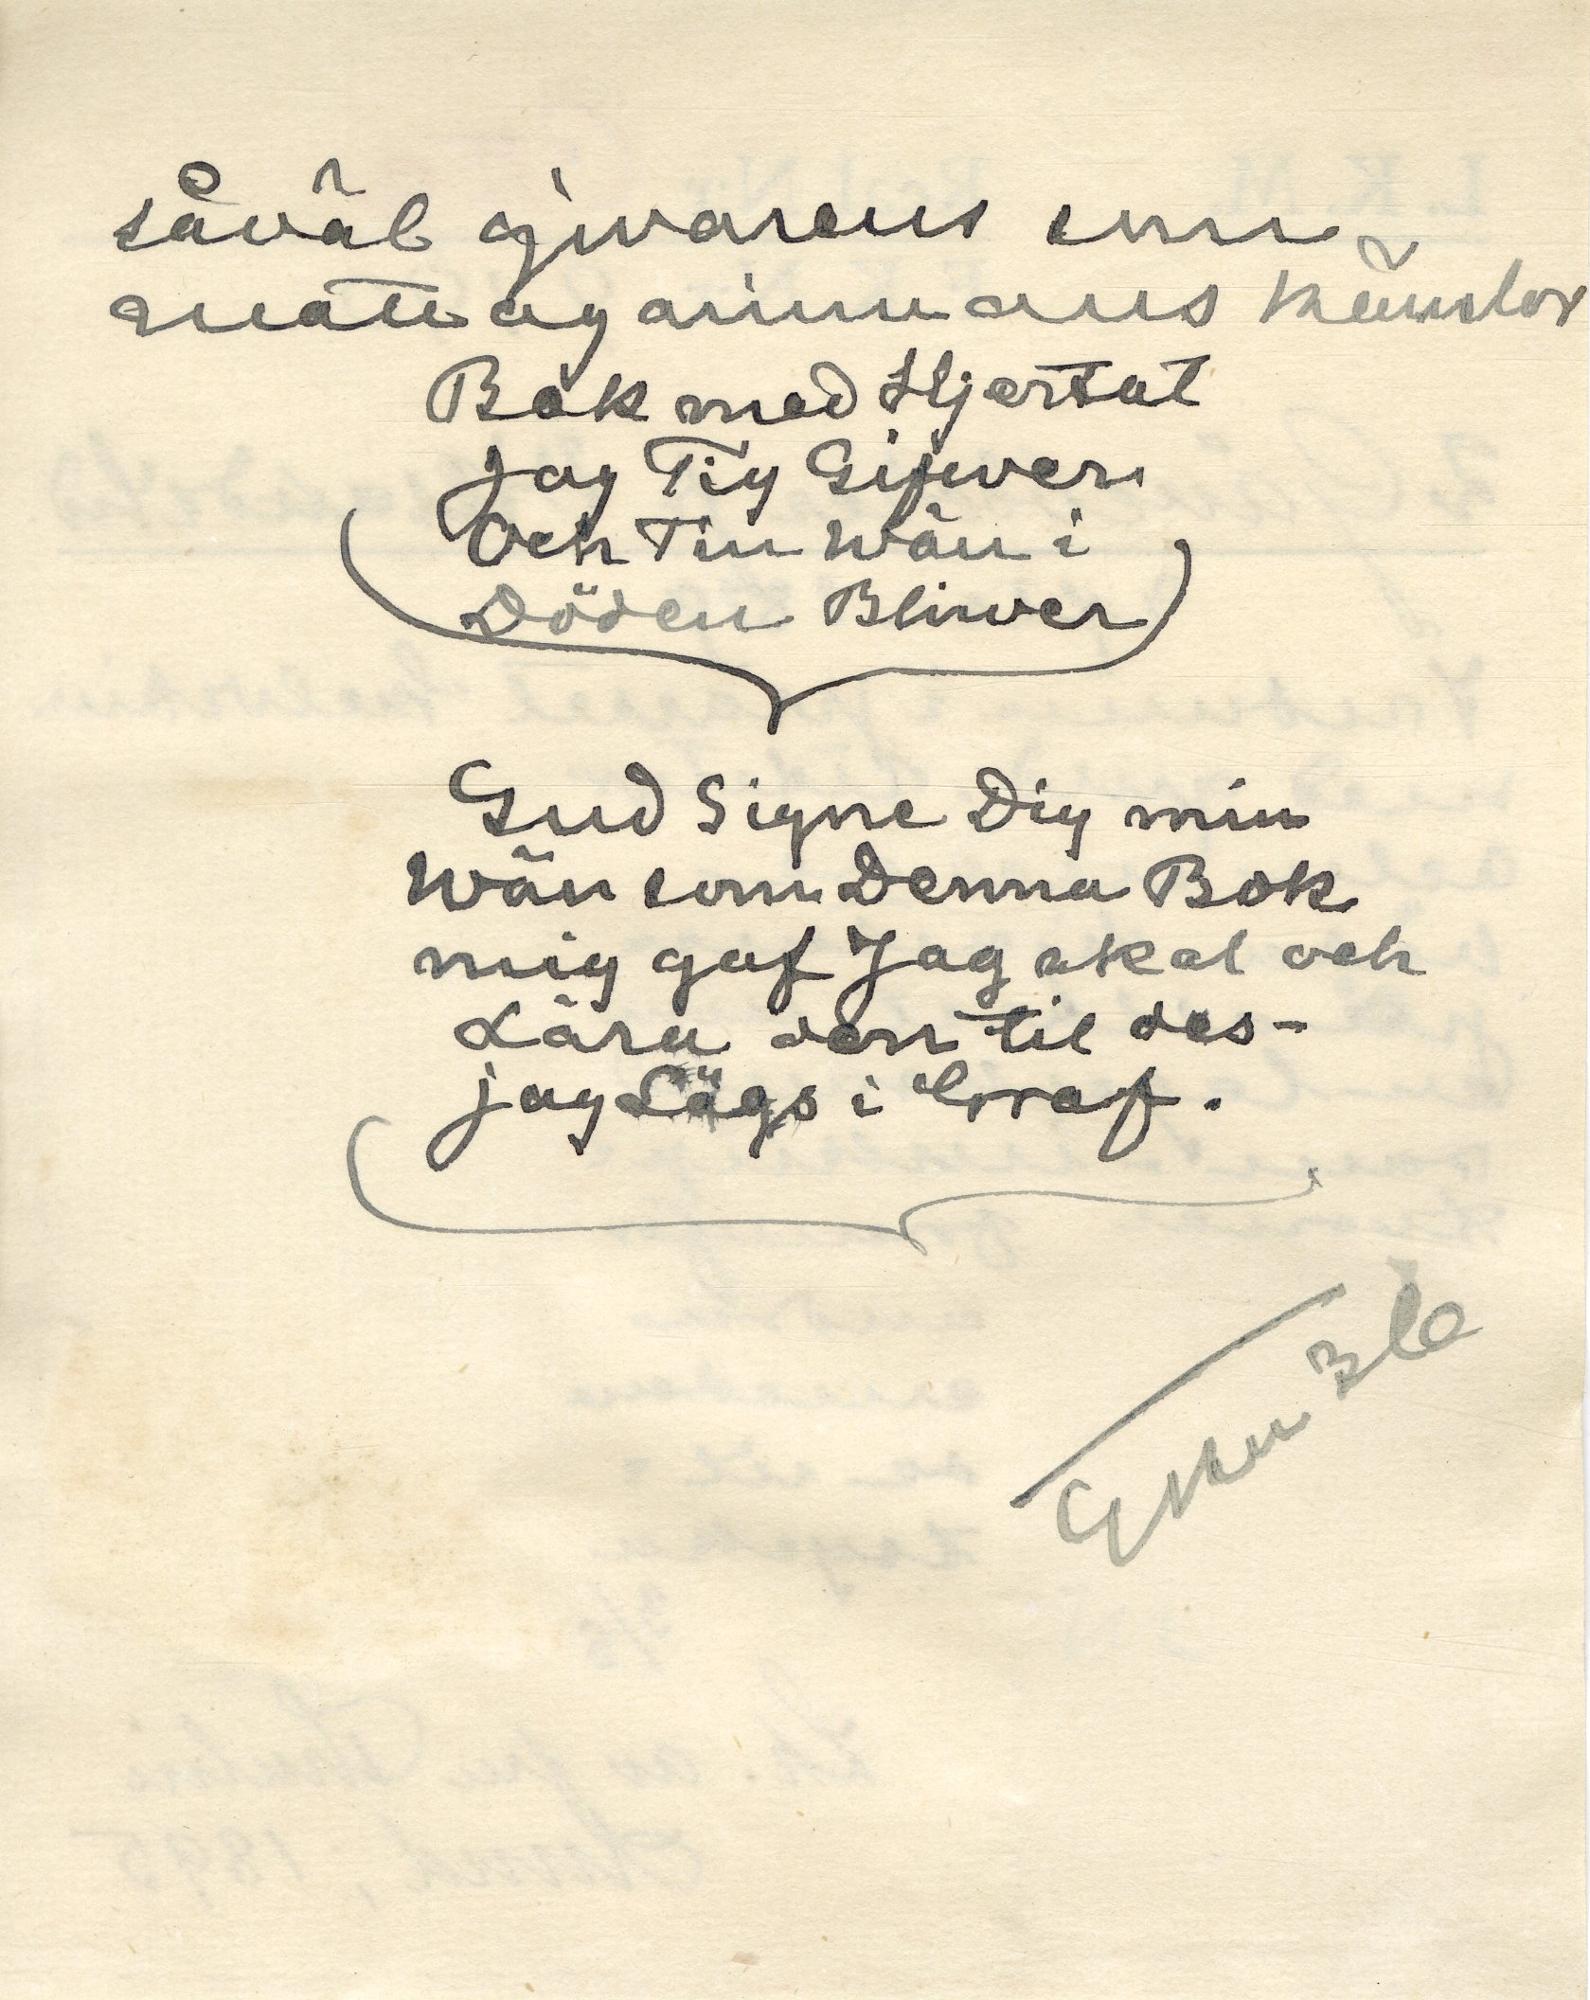 såväl givarens som
mottagarinnans känslor
Bok med Hjertat
Jag Tig Gifwer
Och Tin Wän i
Döden Bliwer
Gud Signe Dig min
Wän som Denna Bok
mig gaf Jag skal och
Lära den til des-
jag Lägs i Graf.